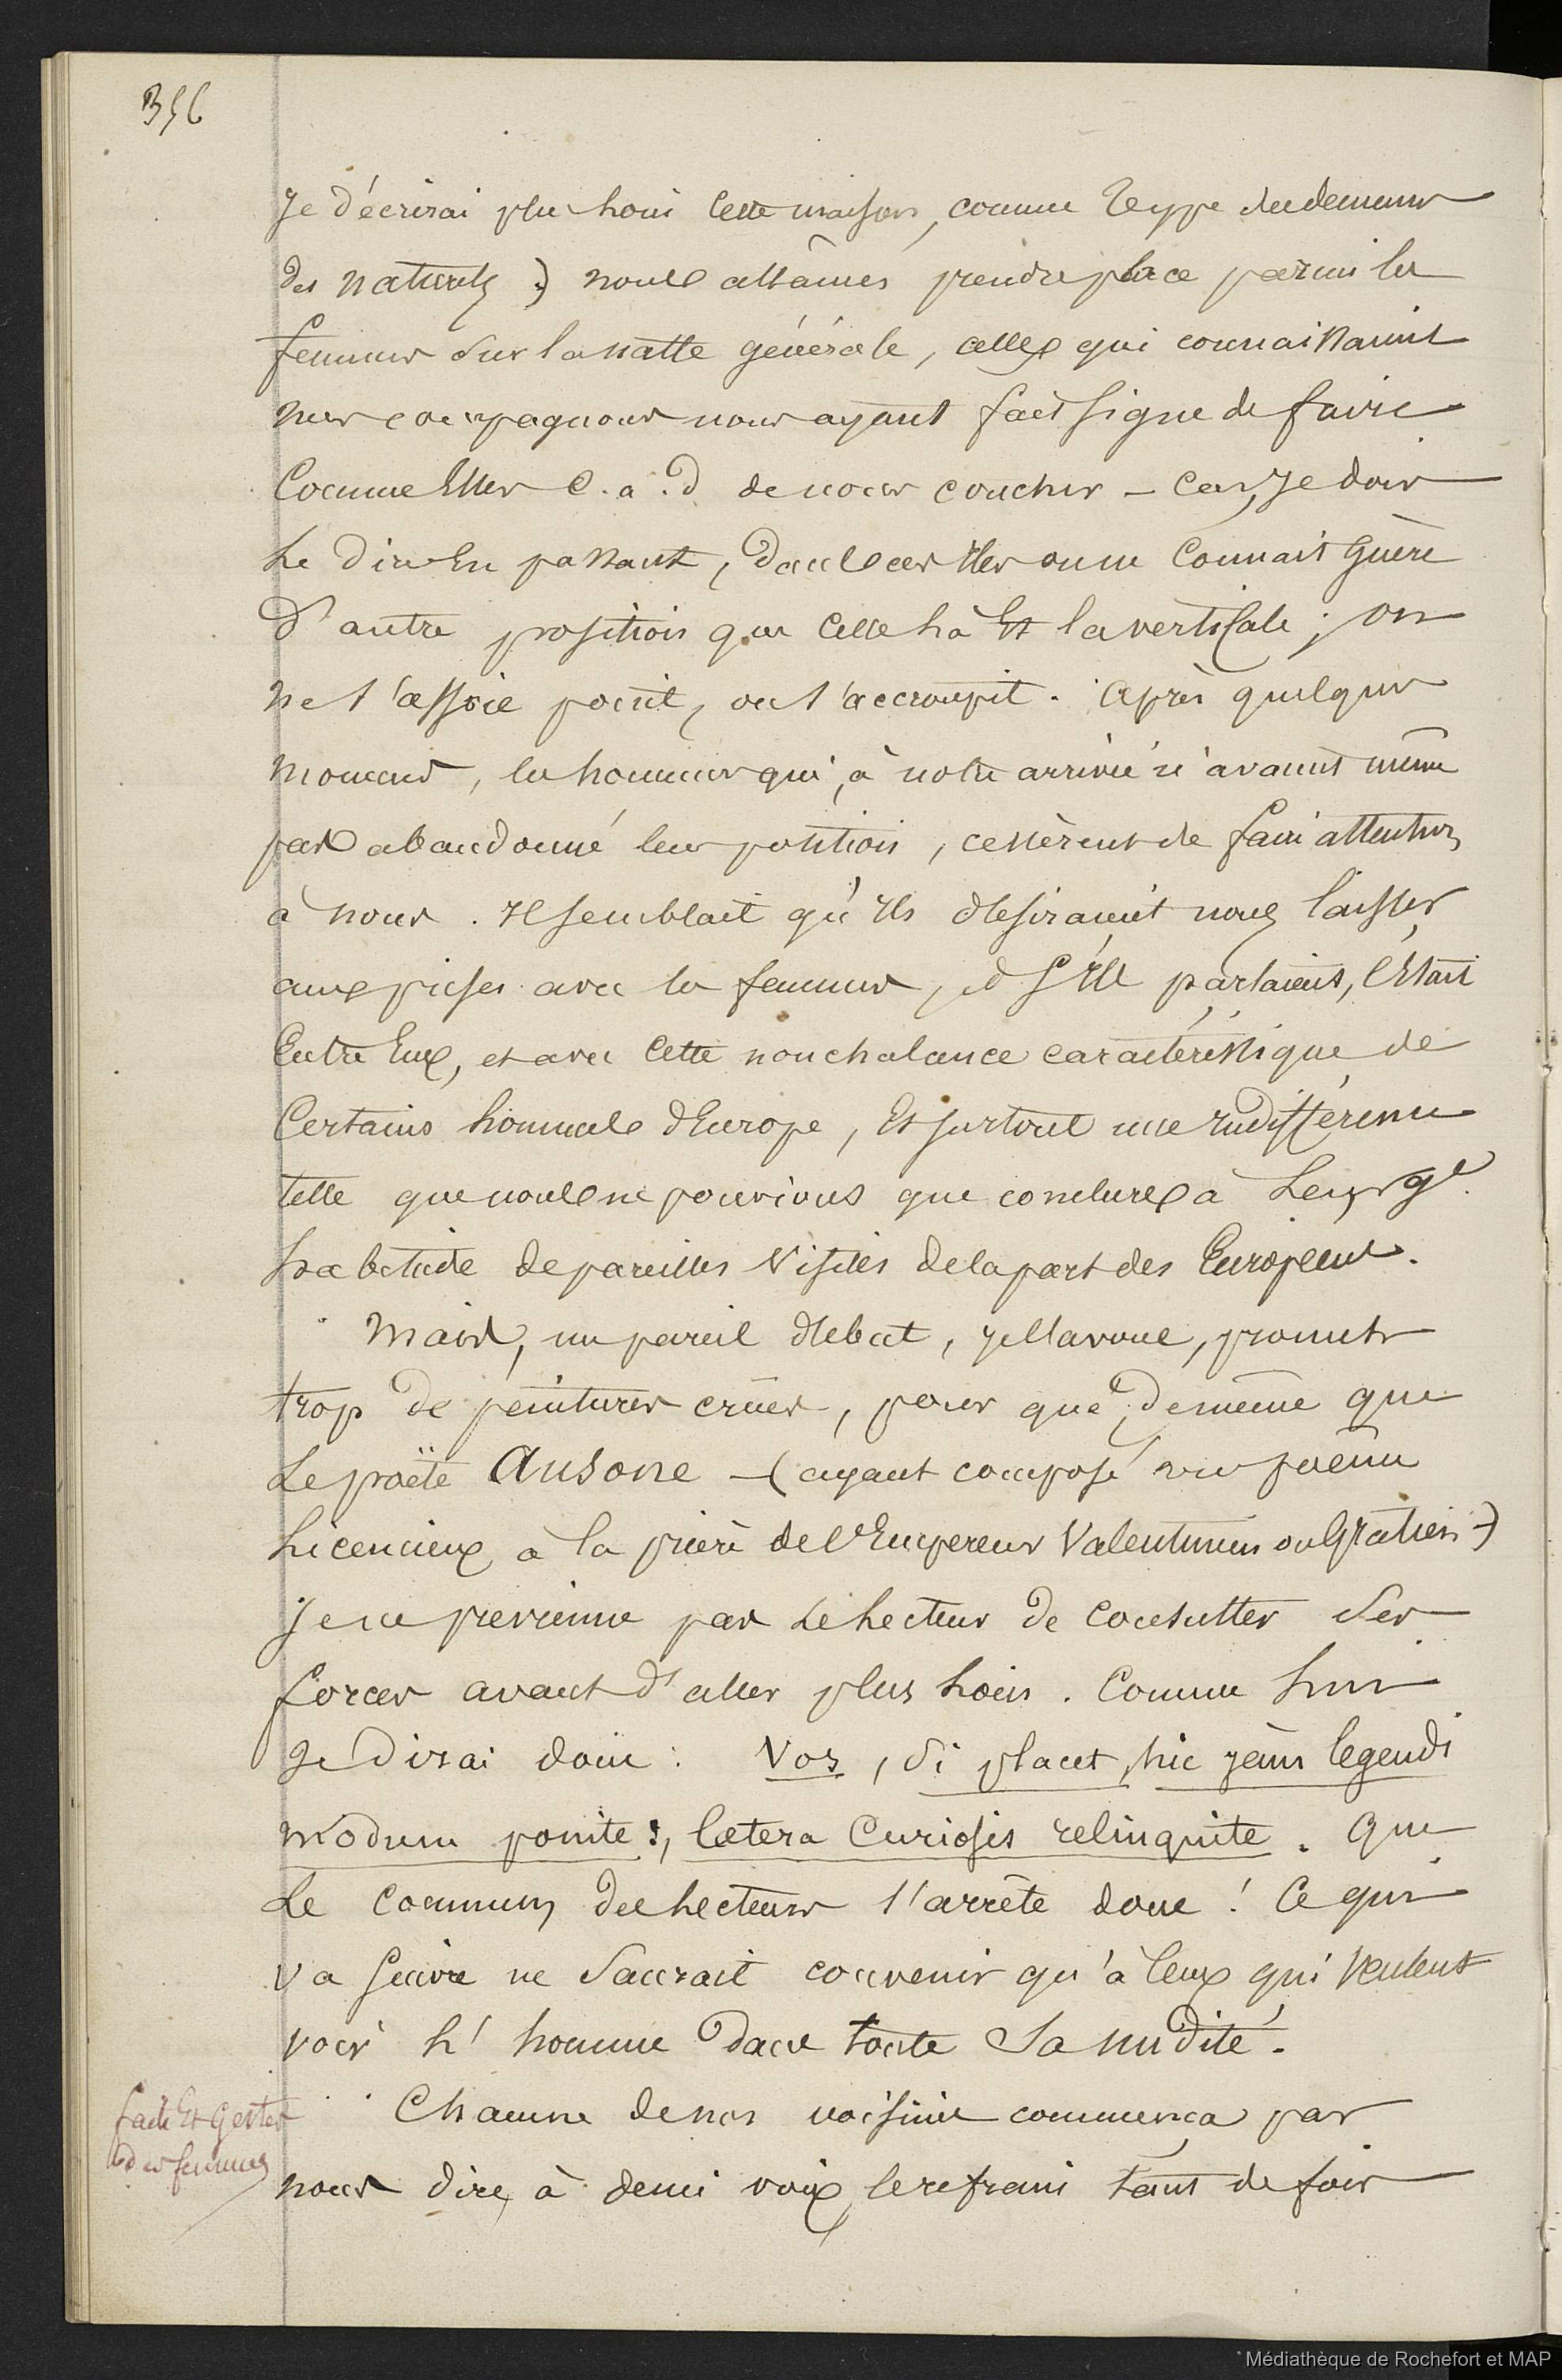 356
Je décrirai plus loin cette maison, comme type des demeures
des naturels) nous allâmes prendre place parmi les
femmes sur la natte générale, celles qui connaissaient
mes compagnons nous ayant fait signe de faire
comme Elles c. a. d de nous coucher – car, Je dois
Le dire En passant, dans ces Iles on ne connait guère
d'autre position que celle là Et la verticale ; on
ne s'assoie point, on s'accroupit. Après quelques
moments, les hommes qui, à notre arrivée n'avaient même
pas abandonné leur position, cessèrent de faire attention
à nous. Il semblait qu'Ils désiraient nous laisser
aux prises avec les femmes, et s'Ils parlaient, c'Etait
Entre Eux, et avec cette nonchalance caractéristique de
Certains hommes d'Europe, Et surtout une Indifférence
telle que nous ne pouvions que conclure à Leur gde
habitude de pareilles visites de la part des Européens.
Mais, un pareil début, je l'avoue, promet
trop de peintures crües, pour que, de même que
Le poëte Ausone – (ayant composé un poême
Licencieux, à la prière de l'Empereur Valentinien ou Gratien –)
Je ne prévienne pas Le Lecteur de consulter ses
forces avant d'aller plus Loin. Comme Lui
Je dirai donc : Vos, si placet, hic jàm legendi
modum ponite :, Cetera Curiosis relinquite. Que
Le commun des Lecteurs s'arrête donc ! Ce qui
va suivre ne saurait convenir qu'à ceux qui veulent
voir L'homme dans toute sa nudité.
faits Et Gestes
des femmes
Chacune de nos voisines commença par
nous dire, à demi voix, le refrain tant de fois
Médiathèque de Rochefort et MAP